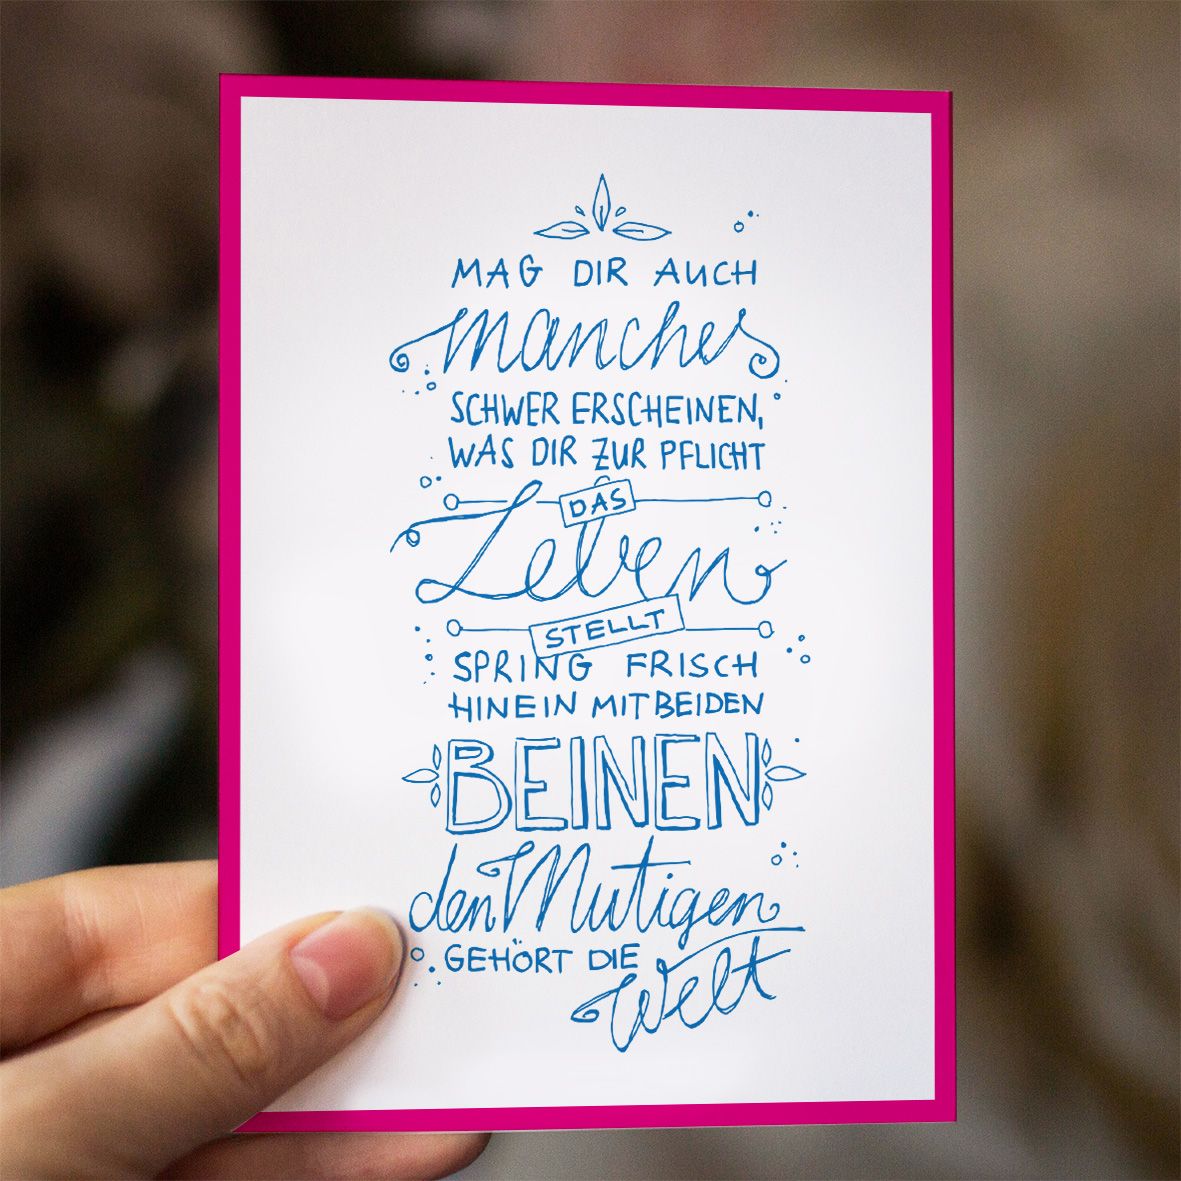 MAG DIR AUCH
manches
SCHWER ERSCHEINEN,
WAS DIR ZUR PFLICHT
DAS
Leben
STELLT
SPRING FRISCH
HINEIN MIT BEIDEN
BEINEN
den Mutigen
GEHÖRT DIE
Welt